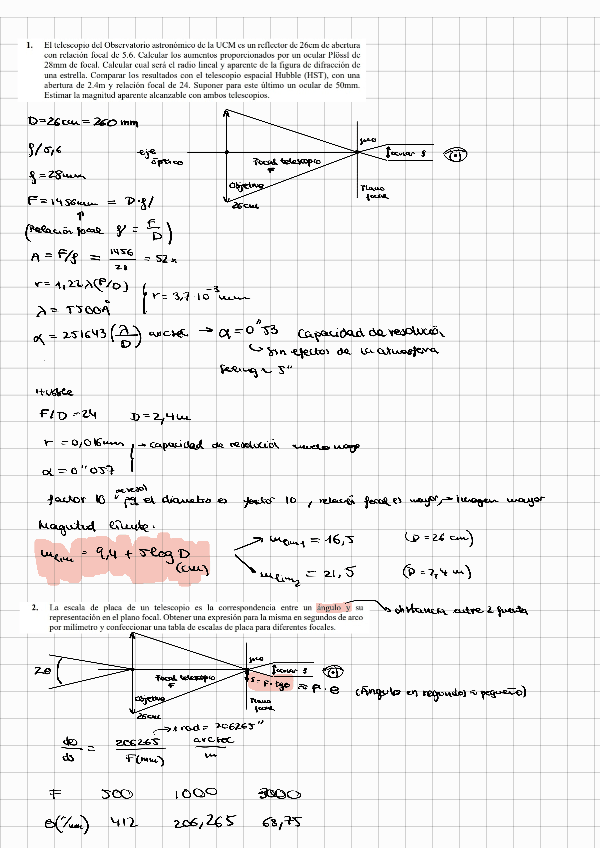 1. El telescopio del Observatorio astronómico de la UCM es un reflector de 26cm de abertura
con relación focal de 5.6. Calcular los aumentos proporcionados por un ocular Plössl de
28mm de focal. Calcular cual será el radio lineal y aparente de la figura de difracción de
una estrella. Comparar los resultados con el telescopio espacial Hubble (HST), con una
abertura de 2.4m y relación focal de 24. Suponer para este último un ocular de 50mm.
Estimar la magnitud aparente alcanzable con ambos telescopios.
D=26cm = 260 mm
f/5,6
eje
óptico
Focal telescopio
F
ocular f
f = 28mm
Objetivo
Plano
focal
26cm
F = 1456mm = D·f/
(Relación focal f/ = F/D)
A = F/f = 1456/28 = 52x
r = 1,22λ(F/D)
r = 3,7·10⁻³ mm
λ = 5500Å
α = 251643 (λ/D) arcsec → α=0"53 Capacidad de resolución
Sin efectos de la atmosfera
Seeing ~ 5"
Hubble
F/D = 24 D=2,4m
r = 0,016mm → capacidad de resolución mucho mayor
α = 0"057
factor 10 pq el diametro es factor 10, relación focal es mayor → imagen mayor
Magnitud límite.
mlim = 9,4 + 5log D
(cm)
mlim1 = 16,5 (D=26 cm)
mlim2 = 21,5 (D=2,4 m)
2. La escala de placa de un telescopio es la correspondencia entre un ángulo y su
representación en el plano focal. Obtener una expresión para la misma en segundos de arco
por milímetro y confeccionar una tabla de escalas de placa para diferentes focales.
distancia entre 2 puntos
2θ
Focal telescopio
F
ocular f
S = F·tgθ ≈ F·θ (Ángulo en segundos es pequeño)
Objetivo
Plano
focal
26cm
1 rad = 206265"
dθ/ds = 206265/F(mm) arcsec/m
F 500 1000 3000
θ("/mm) 412 206,265 68,75